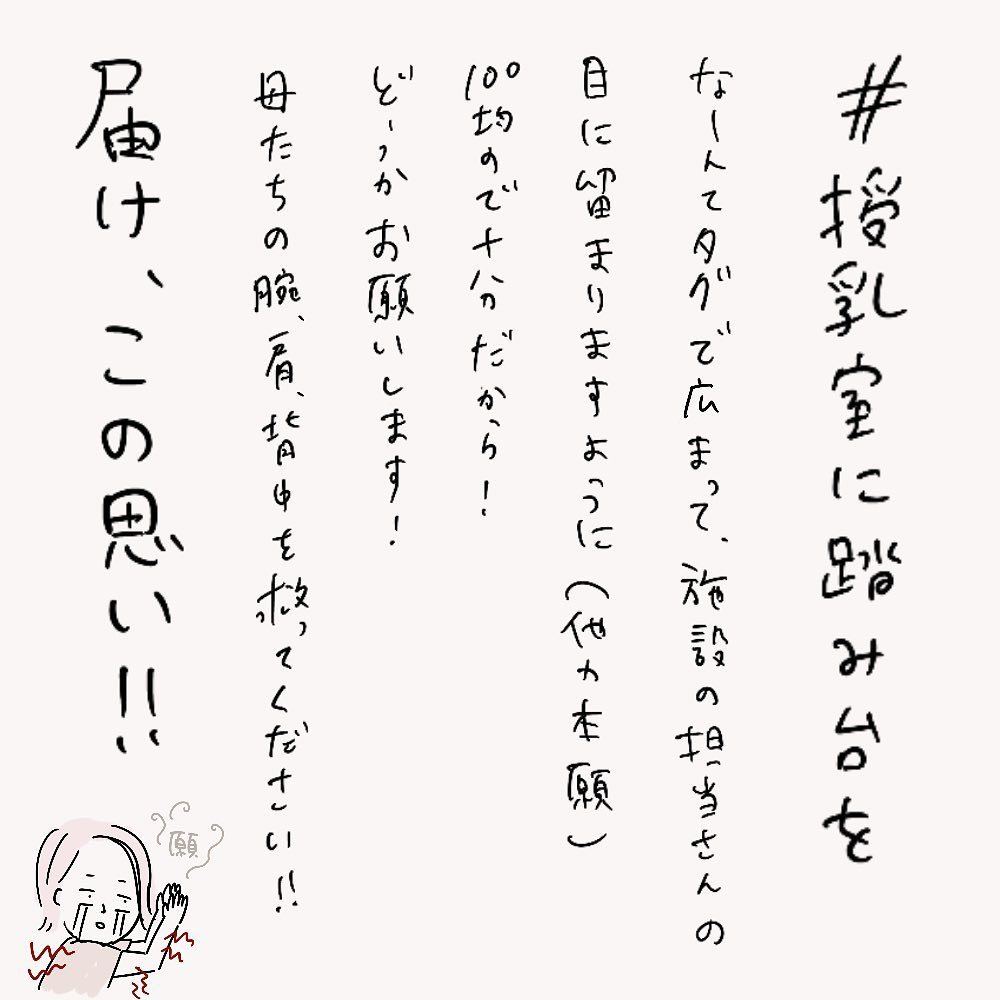 #授乳室に踏み台を
なーんてタグで広まって、施設の担当さんの
目に留まりますように(他力本願)
100均ので十分だから!
どうかお願いします!
母たちの腕、肩、背中を救ってください!!
届け、この思い!!
願